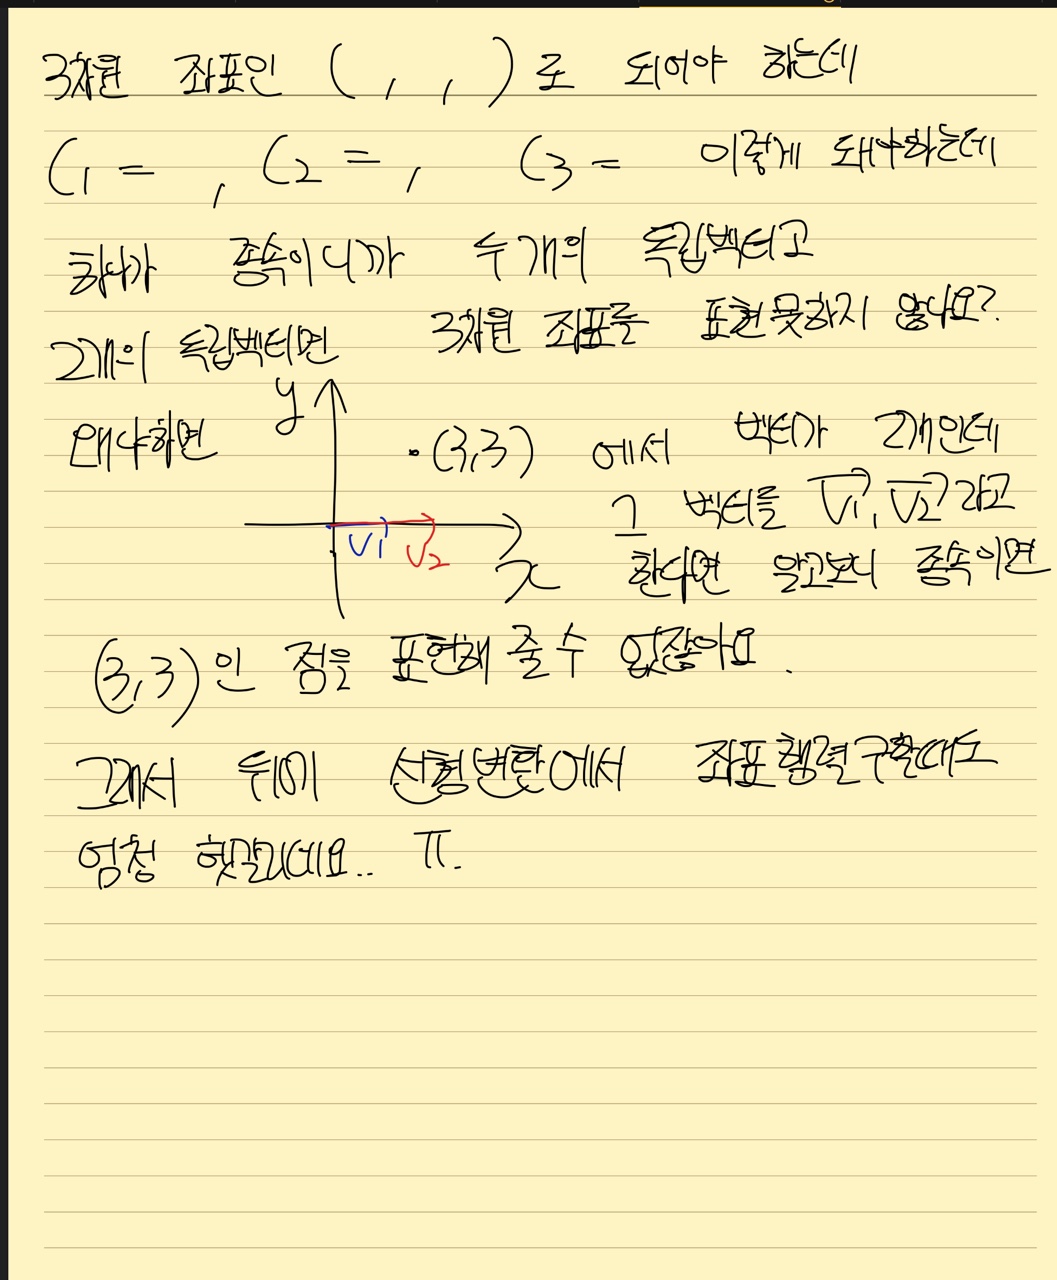 3차원 좌표인 ( , , )로 되어야 하는데
C1 = , C2 = , C3 = 이렇게 돼야하는데
하나가 종속이니까 두개의 독립벡터고
2개의 독립벡터면 3차원 좌표를 표현못하지 않나요?
왜냐하면 y •(3,3) 에서 벡터가 2개인데
그 벡터를 V1, V2 라고
V1 V2 x 한다면 알고보니 종속이면
(3,3)인 점을 표현해 줄 수 없잖아요.
그래서 뒤에 선형변환에서 좌표행렬구할때도
엄청 헷갈리네요.. ㅠ.